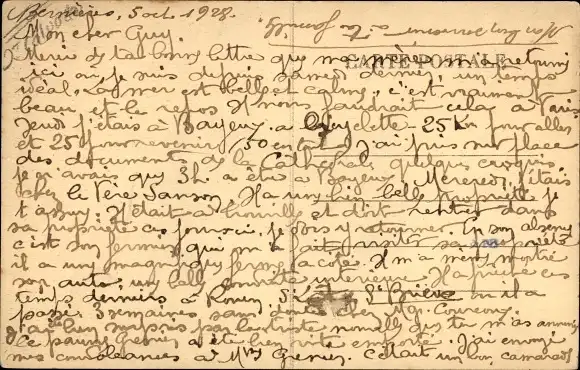 Bernières, 5 oct. 1928.
Mon cher Guy.
CARTE POSTALE
Merci de ta bonne lettre que ma mère m'a retourné
ici où je suis depuis samedi dernier, un temps
idéal. La mer est belle et calme, c'est vraiment
beau et le repos. Il nous faudrait cela à Paris
Jeudi j'étais à Bayeux à bicyclette - 25 Km pour aller
et 25 pour revenir, 50 en tout. J'ai pris sur place
des documents de la Cathédrale, quelques croquis
je n'avais que 3h. à être à Bayeux. Mercredi, j'étais
chez le Père Sanson. Il a une bien belle propriété je
t'assure. Il était à Trouville et doit rentrer dans
sa propriété ces jours-ci, je dois y retourner. En son absence
c'est son fermier qui m'a fait visiter sa propriété
il a une magnifique ferme à côté. Il m'a même montré
son auto, une belle conduite intérieure. Il a passé ces
temps derniers à Rouen, St Brieuc où il a
passé 3 semaines sans doute chez Mg.
J'ai été bien surpris par la triste nouvelle que tu m'as annoncé
ce pauvre Grenier a été bien vite emporté. J'ai envoyé
mes condoléances à Mme Grenier. C'était un bon camarade